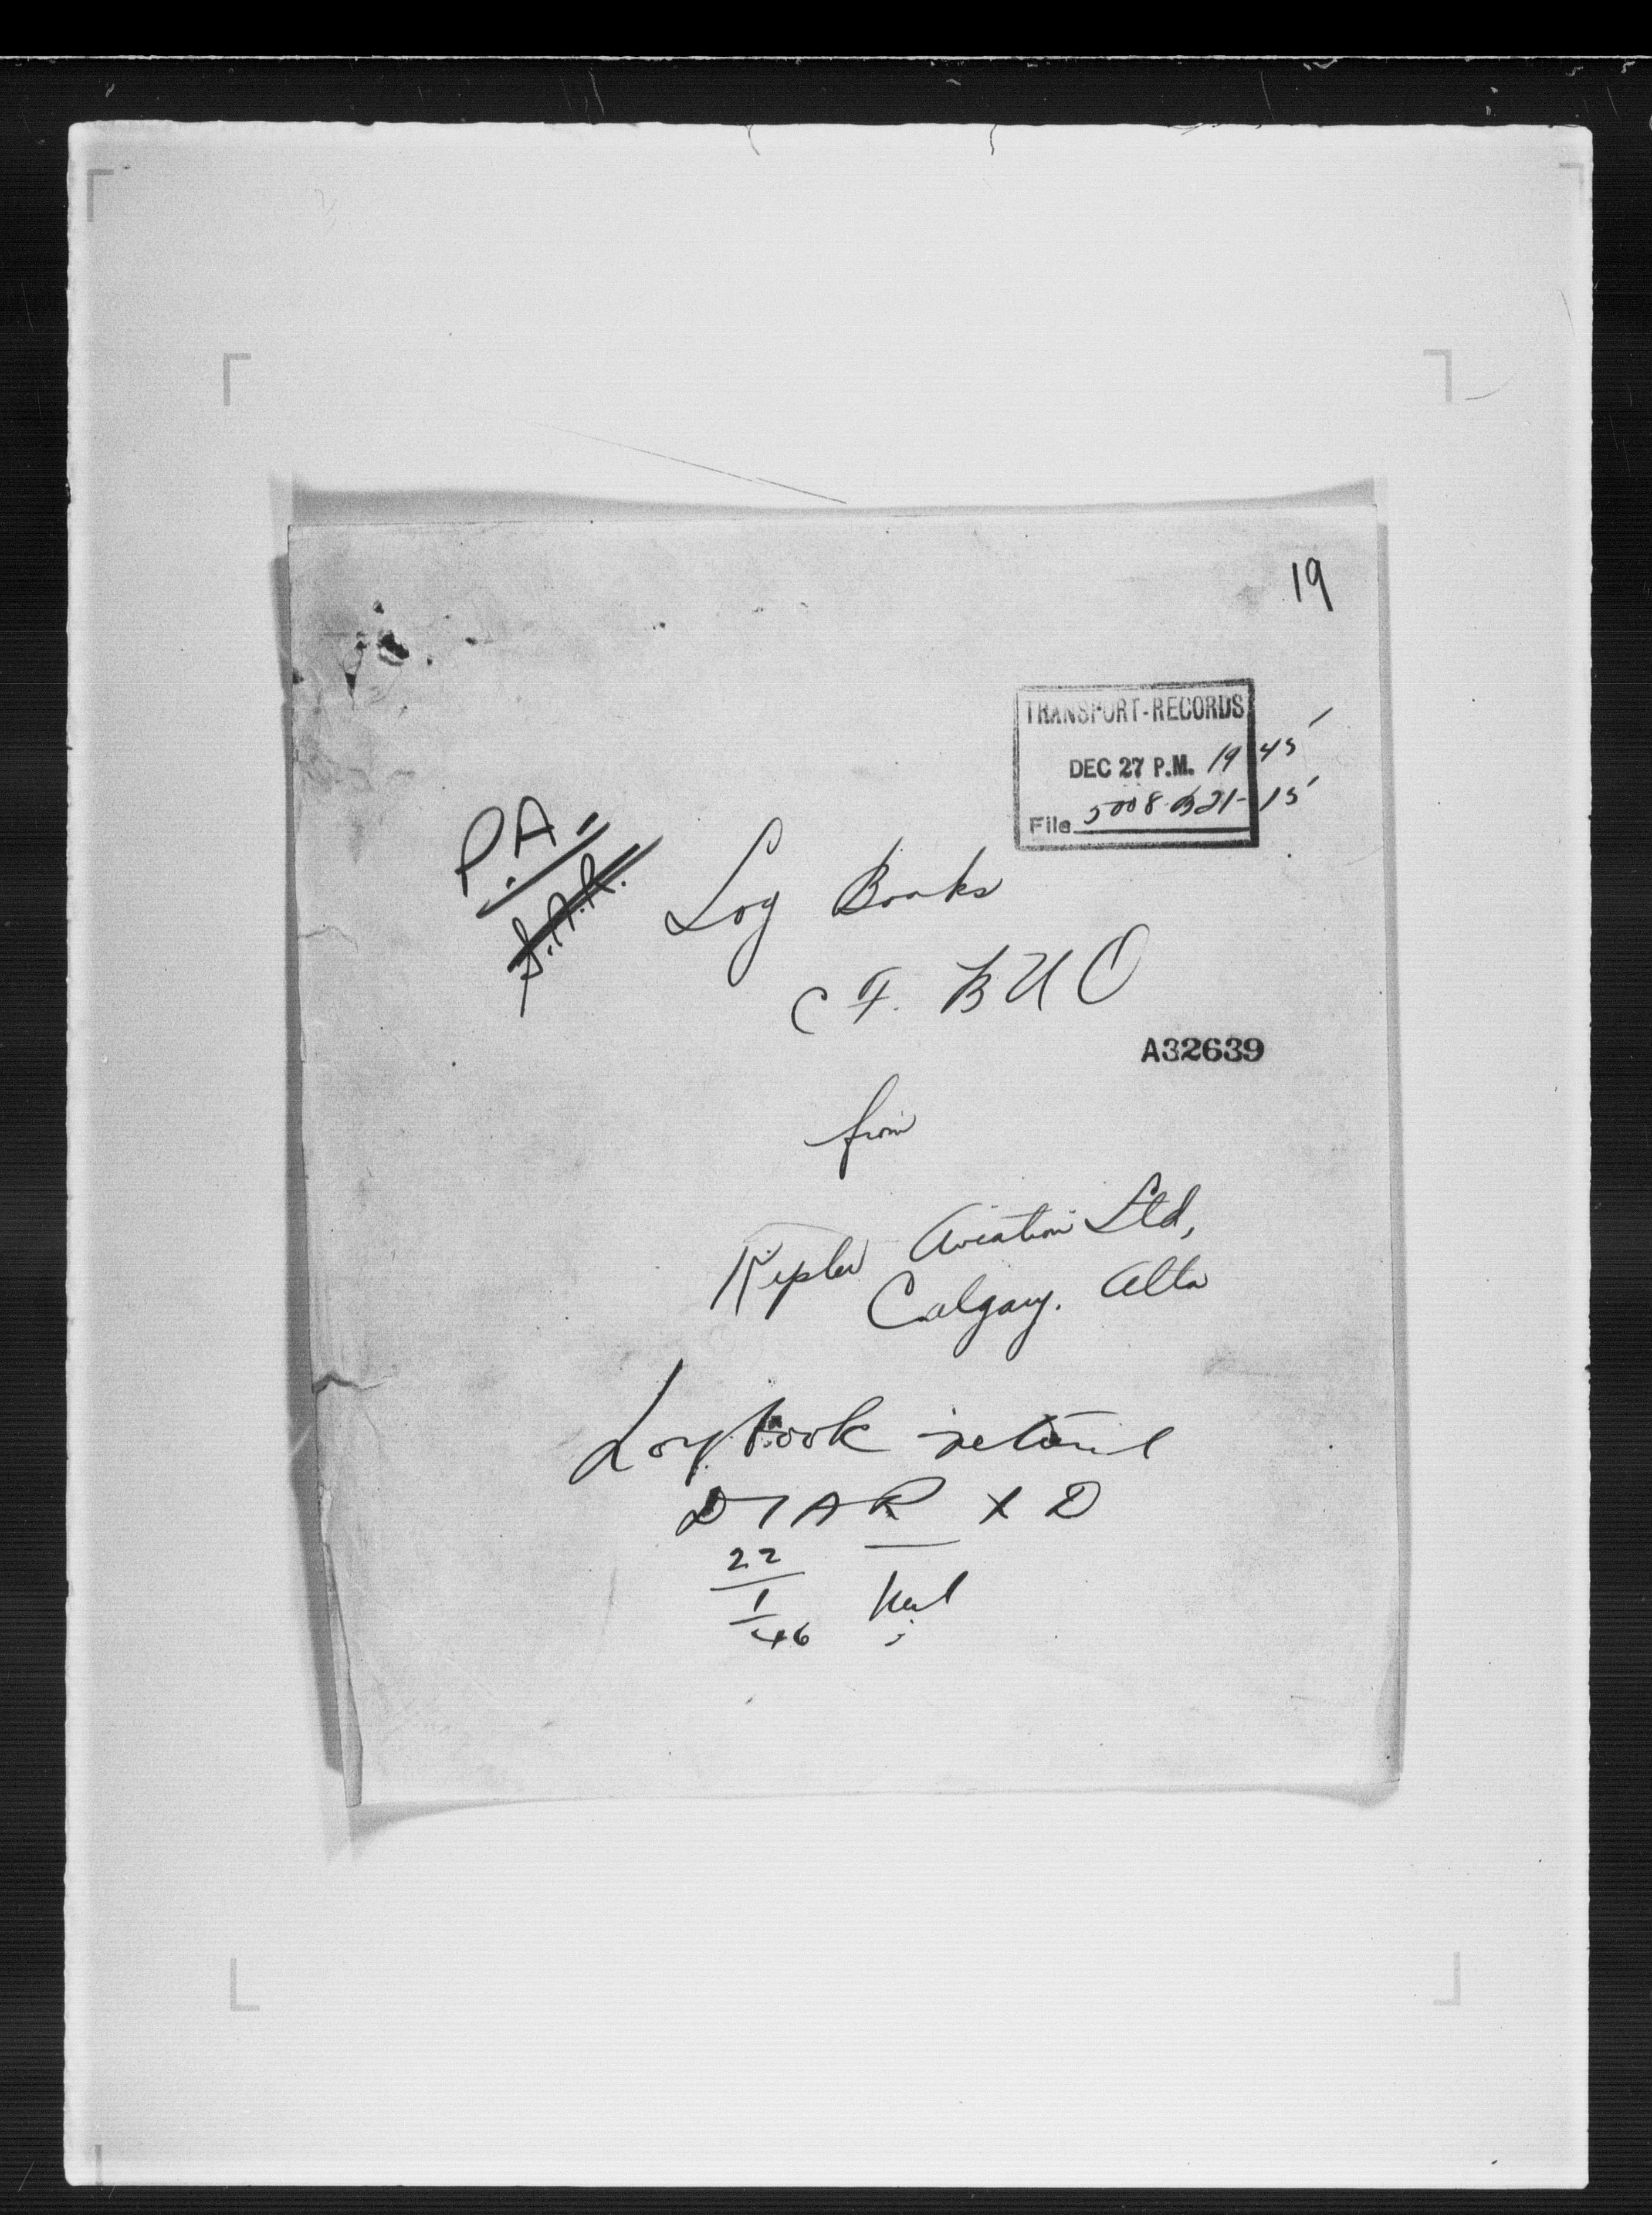 19
TRANSPORT-RECORDS
DEC 27 P.M. 1945
File 5008-B21-15
P.A.
Log Books
CF. BUO
A32639
from
Kepler Aviation Ltd,
Calgary. Alta
Log book
D 1 A R X D
22
1
46